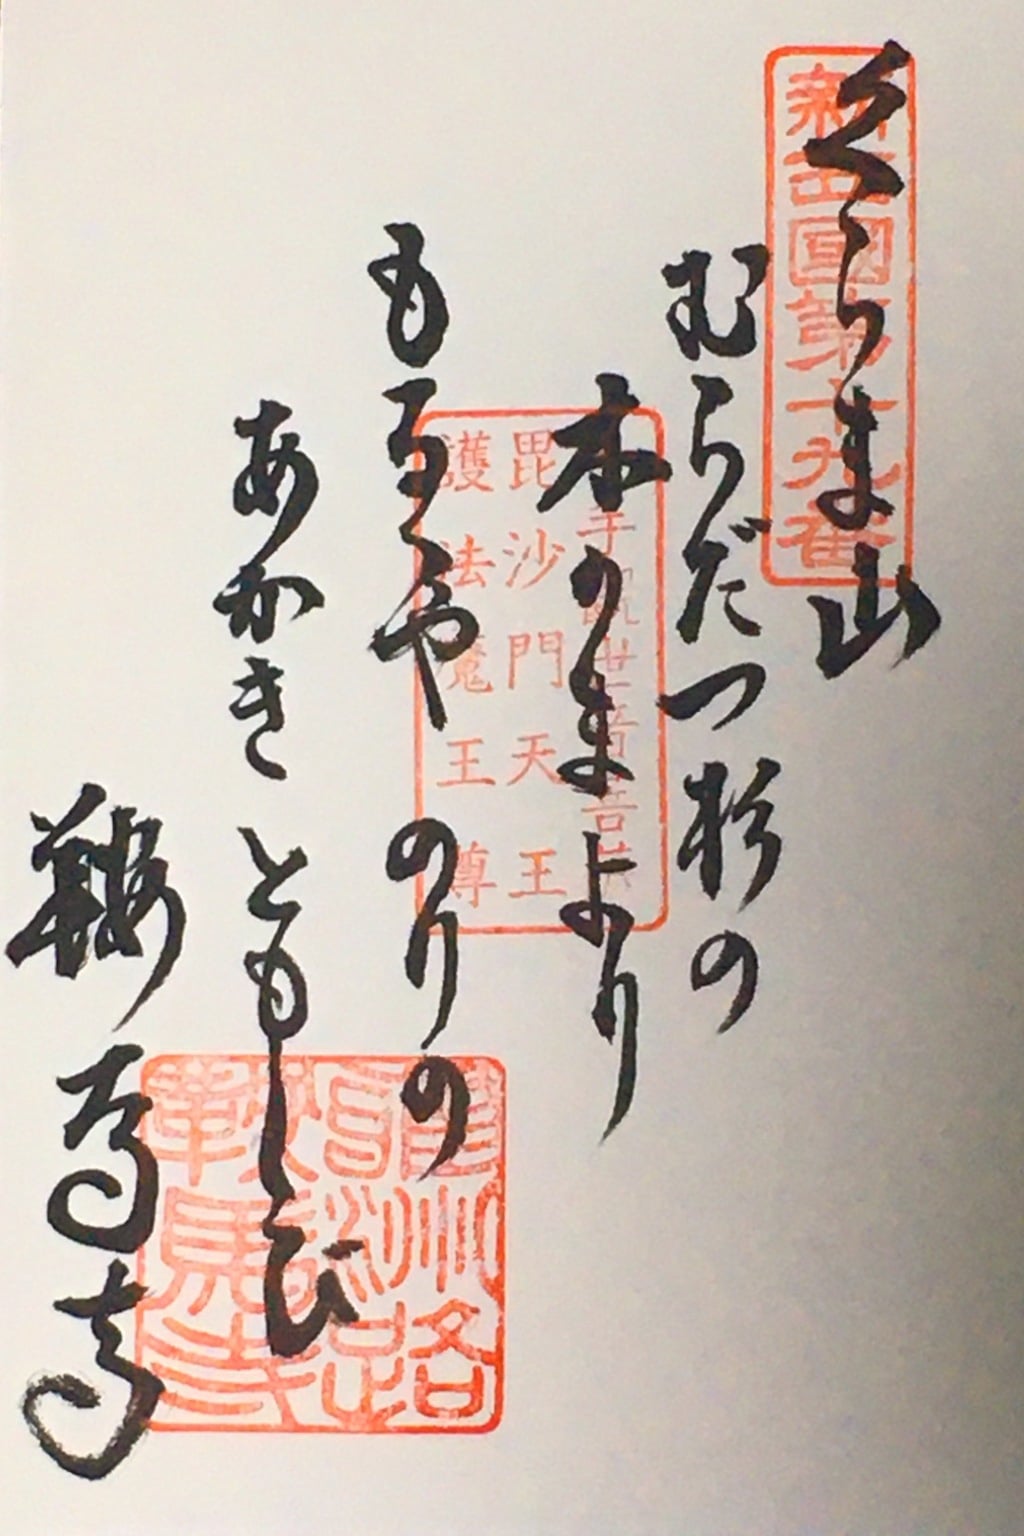 新西國第十九番
くらま山
むらだつ杉の
木のまより
もるゝや のりの
あかき ともしび
鞍馬寺
手觀世音菩
毘沙門天王
護法魔王尊
雍州路
鞍馬寺